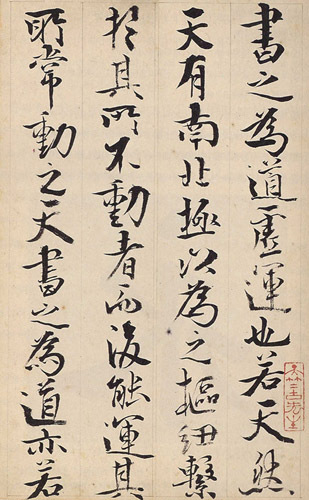 書之為道虛運也若天然
天有南北極以為之樞紐繫
於其所不動者而後能運其
所常動之天書之為道亦若